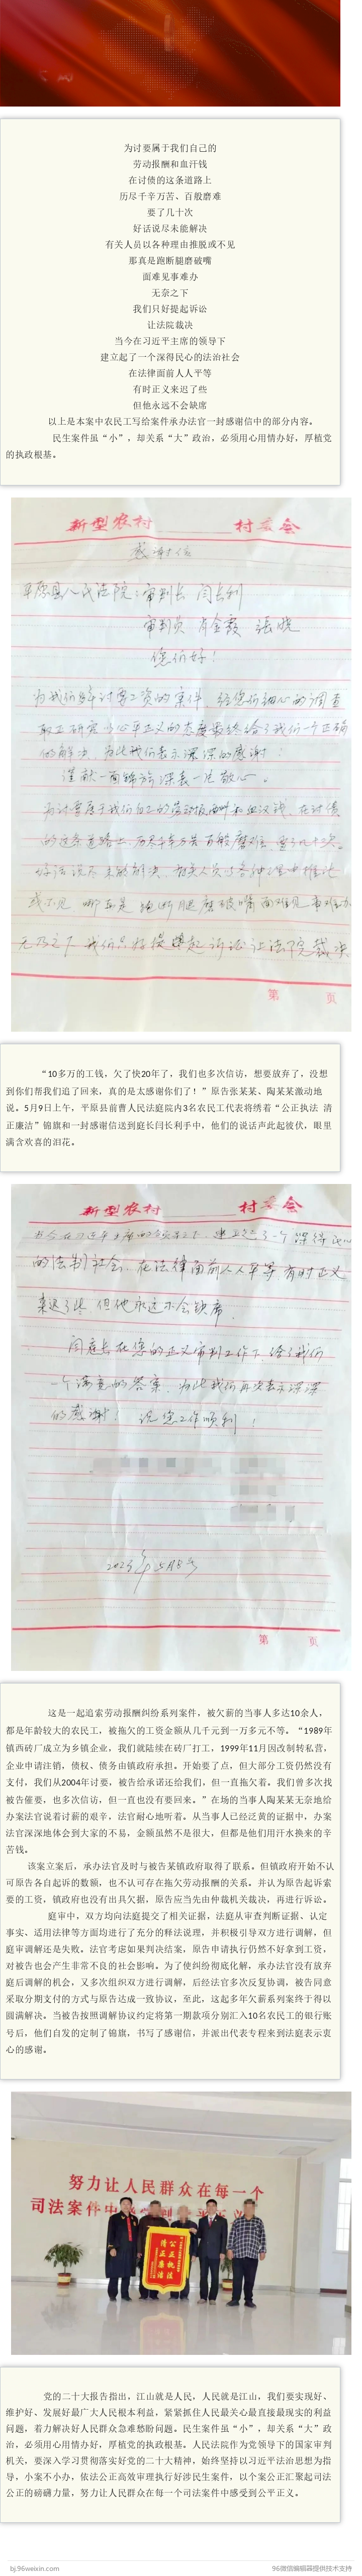 为讨要属于我们自己的
劳动报酬和血汗钱
在讨债的这条道路上
历尽千辛万苦、百般磨难
要了几十次
好话说尽未能解决
有关人员以各种理由推脱或不见
那真是跑断腿磨破嘴
面难见事难办
无奈之下
我们只好提起诉讼
让法院裁决
当今在习近平主席的领导下
建立起了一个深得民心的法治社会
在法律面前人人平等
有时正义来迟了些
但他永远不会缺席
以上是本案中农民工写给案件承办法官一封感谢信中的部分内容。
民生案件虽“小”，却关系“大”政治，必须用心用情办好，厚植党
的执政根基。
新型农村 村委会
感谢信
平原县人民法院：审判长 闫长利
审判员 肖金霞 张晓
您们好！
为我们多年讨要工资的案件，经您们细心的调查
取证研究 公平正义的态度最终给了我们一个正确
的解决 为此我们表示深深的感谢：
谨献一面锦旗深表一片敬心。
为讨要属于我们自己的劳动报酬和血汗钱，在讨债
的这条道路上，历尽千辛万苦 百般磨难 要了几十次。
好话说尽未能解决 有关人员以各种理由推脱
或不见 那真是跑断腿磨破嘴 面难见事难办
无奈之下 我们只好提起诉讼 让法院裁决
第 页
“10多万的工钱，欠了快20年了，我们也多次信访，想要放弃了，没想
到你们帮我们追了回来，真的是太感谢你们了！”原告张某某、陶某某激动地
说。5月9日上午，平原县前曹人民法庭院内3名农民工代表将绣着“公正执法 清
正廉洁”锦旗和一封感谢信送到庭长闫长利手中，他们的说话声此起彼伏，眼里
满含欢喜的泪花。
新型农村 村委会
当今在习近平主席的领导下，建立起了一个深得民心
的法制社会，在法律面前人人平等，有时正义
来迟了些，但他永远不会缺席。
闫庭长在您的正义审判工作下，给了我们
一个满意的答案，为此我们再次表示深深
的感谢！ 祝您工作顺利！
2023年5月8号
第 页
这是一起追索劳动报酬纠纷系列案件，被欠薪的当事人多达10余人，
都是年龄较大的农民工，被拖欠的工资金额从几千元到一万多元不等。“1989年
镇西砖厂成立为乡镇企业，我们就陆续在砖厂打工，1999年11月因改制转私营，
企业申请注销，债权、债务由镇政府承担。开始要了点，但大部分工资仍然没有
支付，我们从2004年讨要，被告给承诺还给我们，但一直拖欠着。我们曾多次找
被告催要，也多次信访，但一直也没有要回来。”在场的当事人陶某某无奈地给
办案法官说着讨薪的艰辛，法官耐心地听着。从当事人已经泛黄的证据中，办案
法官深深地体会到大家的不易，金额虽然不是很大，但都是他们用汗水换来的辛
苦钱。
该案立案后，承办法官及时与被告某镇政府取得了联系。但镇政府开始不认
可原告各自起诉的数额，也不认可存在拖欠劳动报酬的关系。并认为原告起诉索
要的工资，镇政府也没有出具欠据，原告应当先由仲裁机关裁决，再进行诉讼。
庭审中，双方均向法庭提交了相关证据，法庭从审查判断证据、认定
事实、适用法律等方面均进行了充分的释法说理，并积极引导双方进行调解，但
庭审调解还是失败。法官考虑如果判决结案，原告申请执行仍然不好拿到工资，
对被告也会产生非常不良的社会影响。为了使纠纷彻底化解，承办法官没有放弃
庭后调解的机会，又多次组织双方进行调解，后经法官多次反复协调，被告同意
采取分期支付的方式与原告达成一致协议，至此，这起多年欠薪系列案终于得以
圆满解决。当被告按照调解协议约定将第一期款项分别汇入10名农民工的银行账
号后，他们自发的定制了锦旗，书写了感谢信，并派出代表专程来到法庭表示衷
心的感谢。
努力让人民群众在每一个
司法案件中感受到公平正义
公正执法
清正廉洁
党的二十大报告指出，江山就是人民，人民就是江山，我们要实现好、
维护好、发展好最广大人民根本利益，紧紧抓住人民最关心最直接最现实的利益
问题，着力解决好人民群众急难愁盼问题。民生案件虽“小”，却关系“大”政
治，必须用心用情办好，厚植党的执政根基。人民法院作为党领导下的国家审判
机关，要深入学习贯彻落实好党的二十大精神，始终坚持以习近平法治思想为指
导，小案不小办，依法公正高效审理执行好涉民生案件，以个案公正汇聚起司法
公正的磅礴力量，努力让人民群众在每一个司法案件中感受到公平正义。
bj.96weixin.com 96微信编辑器提供技术支持